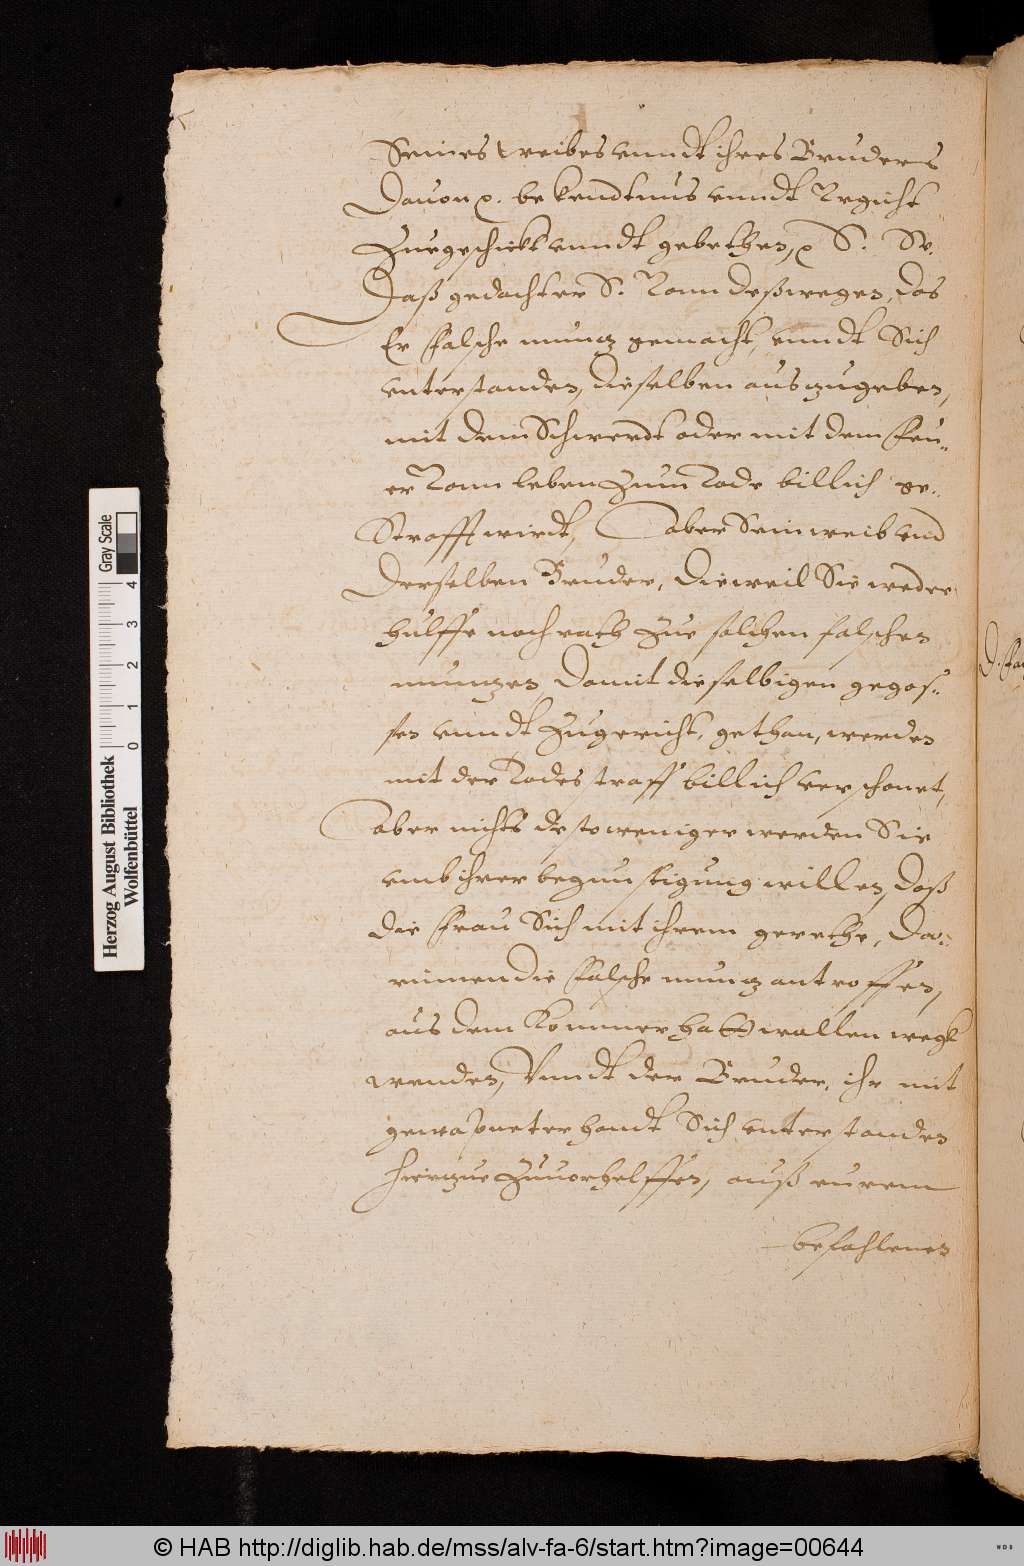 Seines weibes unndt ihres Bruders
Dauon p. bekendtnus unndt Urgicht
Zuegeschickt unndt gebethen, p S. Sr.
Daß gedachter S. Vom deßwegen, das
Er falsche muntz gemacht, unndt Sich
unterstanden, dieselben auszugeben,
mit dem Schwerdt oder mit dem Feu„
er Vom leben Zum Tode billich ge„
Strafft wirdt, aber Sein weib und
Derselben Bruder, dieweil Sie weder
hulffe noch rath Zue solchen falschen
muntzen, Damit dieselbigen gegos„
sen unndt Zugericht, gethan, werden
mit der Todesstraff billich verschonet,
aber nichts destoweniger werden Sie
umb ihrer begunstigung willen, daß
die Frau Sich mit ihrem gerethe, Da„
rinnen die falsche muntz antroffen,
aus dem Kommer hatt wollen wegk
wenden, Unndt der Bruder, ihr mit
gewapneter handt Sich unterstanden
hierzue Zuuorhelffen, auß eurem
befohlenen
D. Fau
Herzog August Bibliothek
Wolfenbüttel
0 1 2 3 4
Gray Scale
© HAB http://diglib.hab.de/mss/alv-fa-6/start.htm?image=00644
WDB